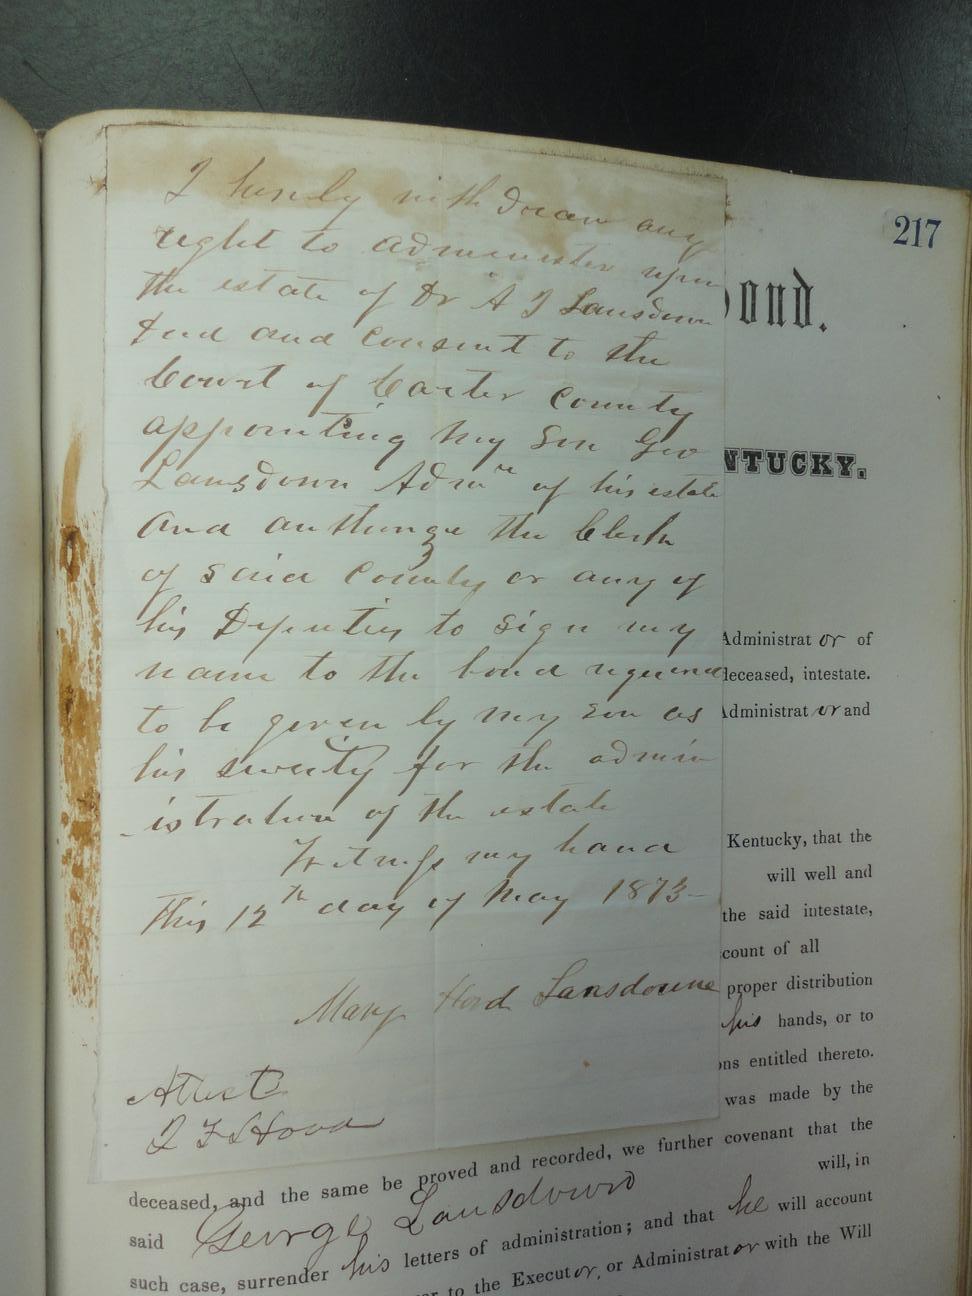 217
ond.
NTUCKY.
I hereby withdraw any
right to administer upon
the estate of Dr A J Lansdown
decd and consent to the
Court of Carter County
appointing my Son Geo
Lansdown Admr of his estate
and authorize the Clerk
of said County or any of
his Deputies to sign my
name to the bond required
to be given by my son as
his surety for the admin
istration of the estate
Witness my hand
This 12th day of May 1873
Mary Hord Lansdowne
Attest
Hord
Administrator of
deceased, intestate.
Administrator and
Kentucky, that the
will well and
the said intestate,
count of all
proper distribution
his hands, or to
ons entitled thereto.
was made by the
deceased, and the same be proved and recorded, we further covenant that the
said George Lansdown will, in
such case, surrender his letters of administration; and that he will account
to the Executor, or Administrator with the Will